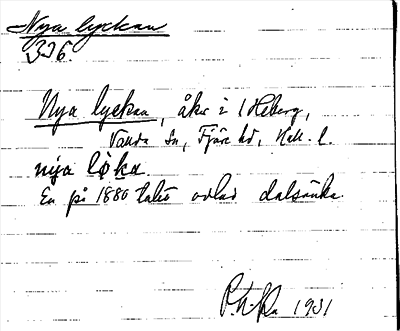 Nya lyckan
326.
Nya lyckan, åker i 1 Heberg,
Vallda sn, Fjäre hd, Hall. l.
nỳa lo̊ka.
En på 1880 talet odlad dalsänka.
1931